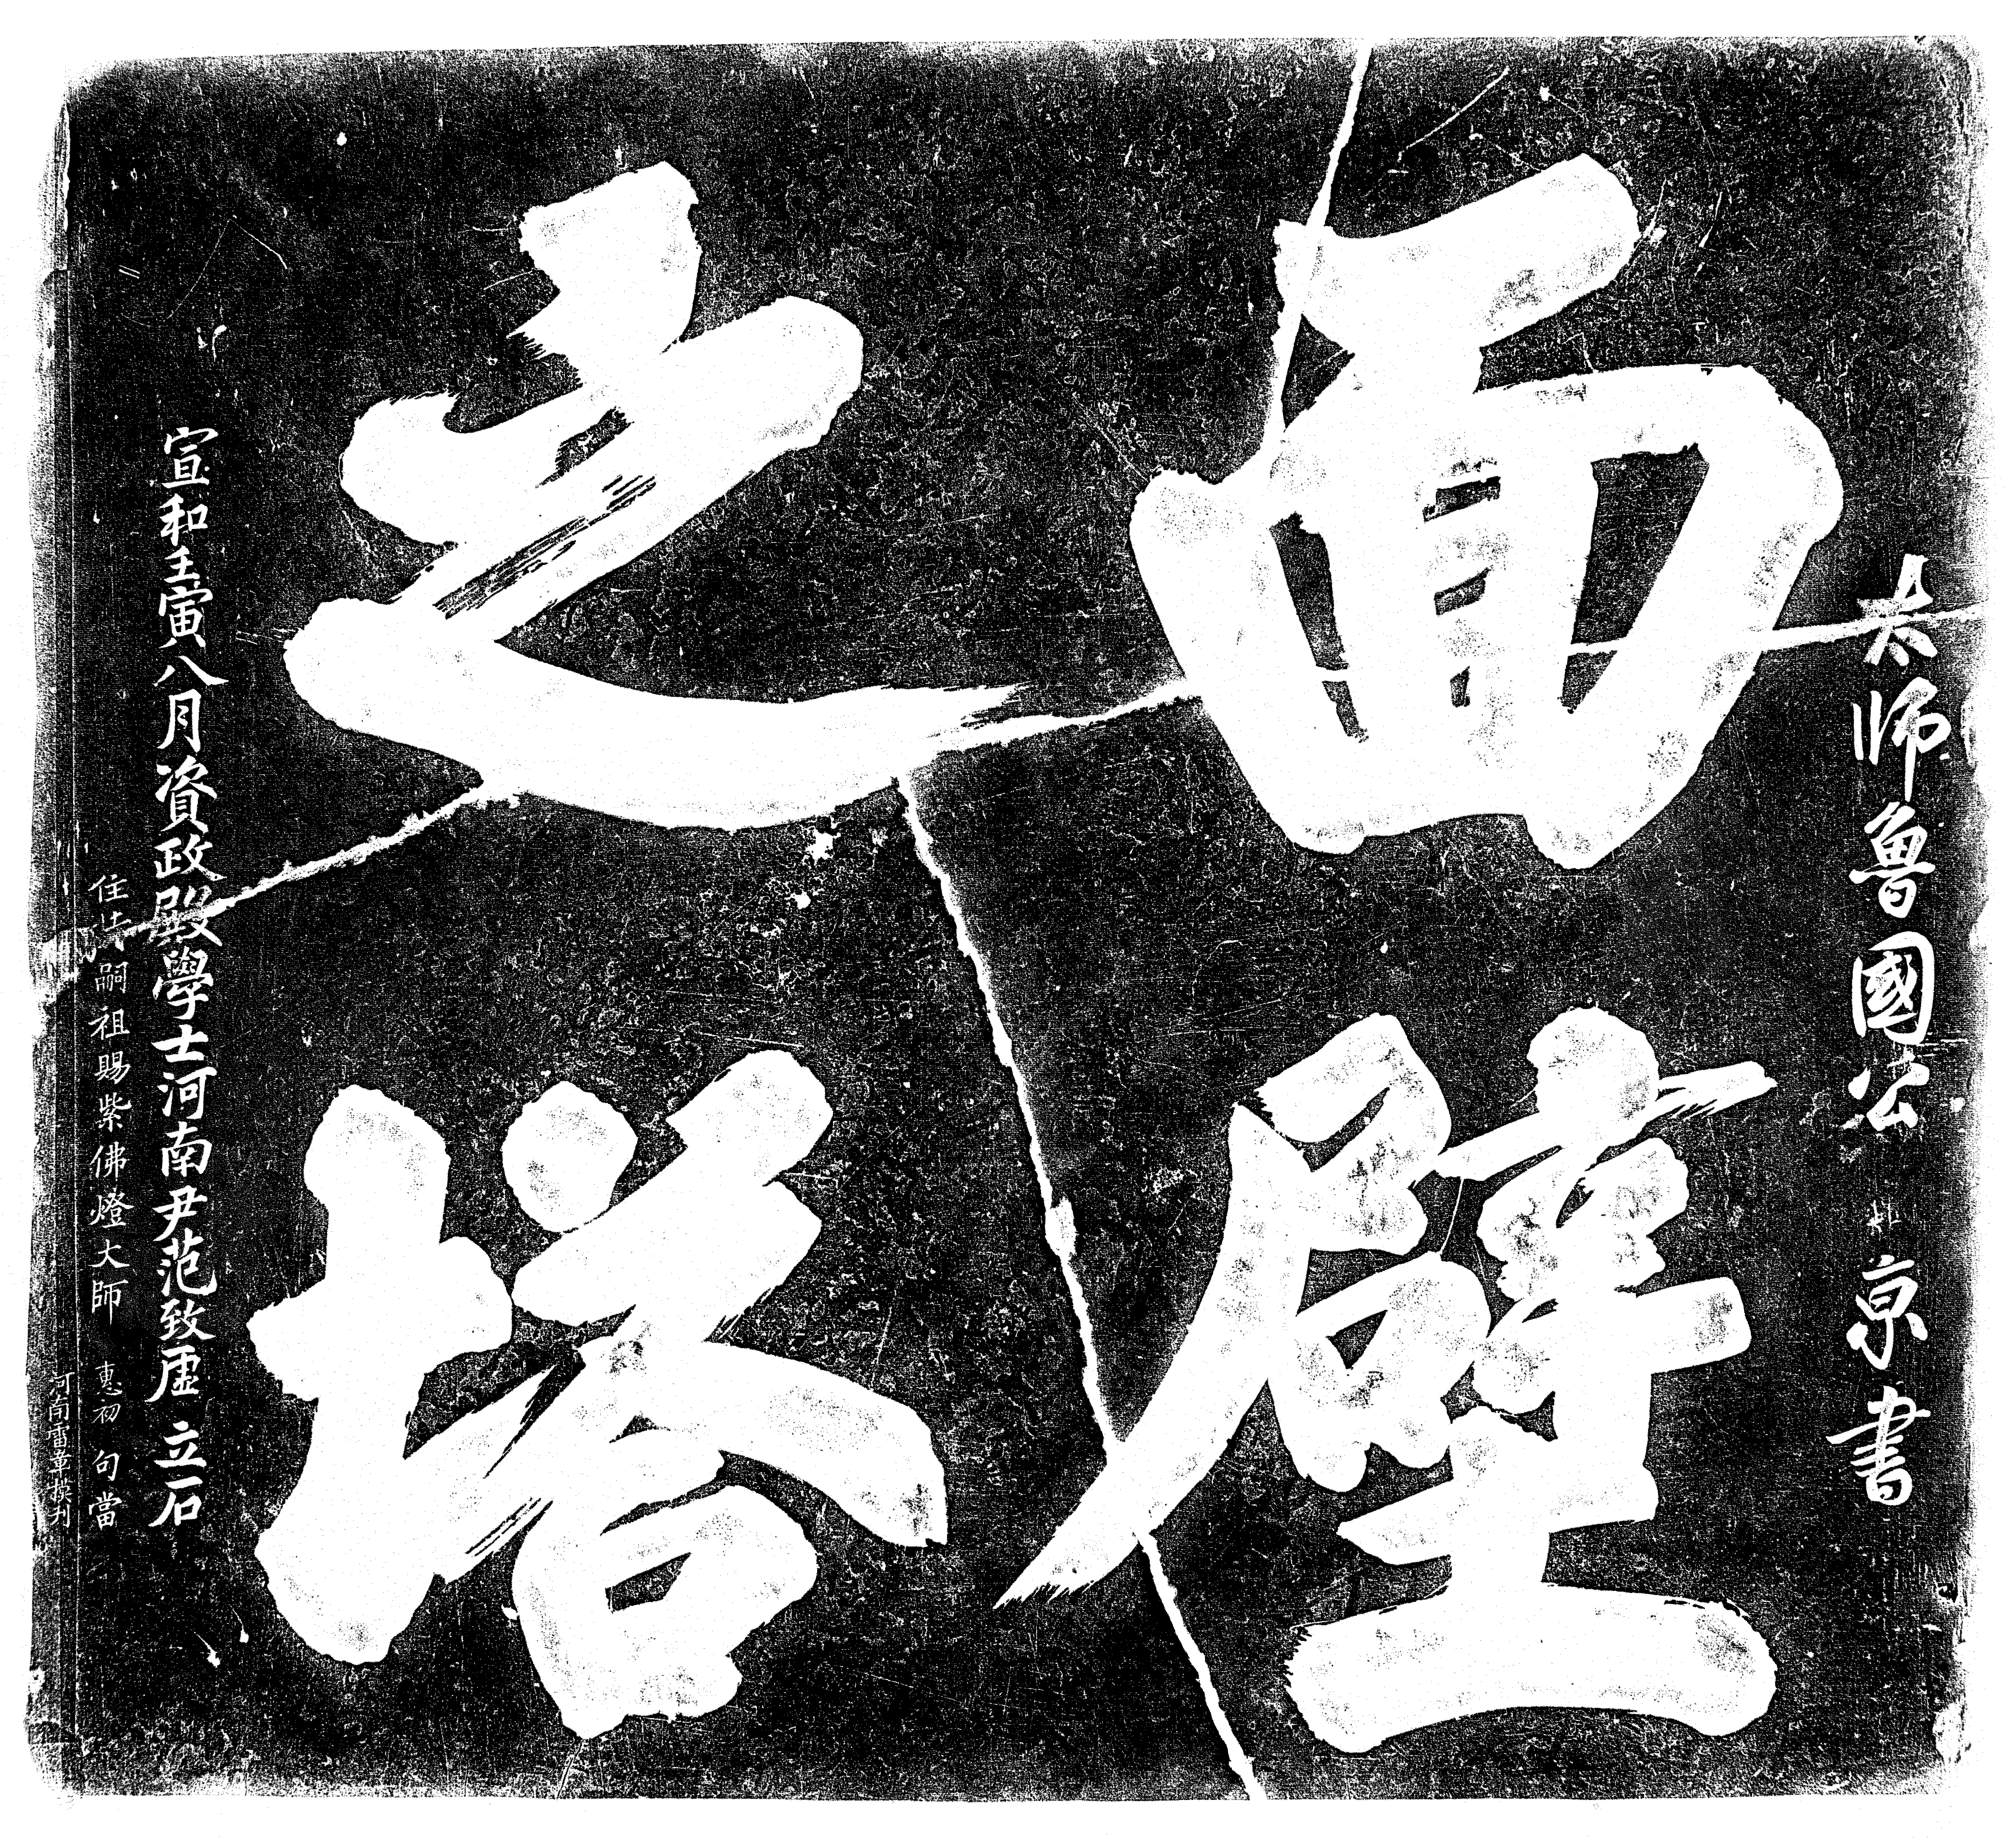 太師魯國公京書
面壁
之塔
宣和壬寅八月資政殿學士河南尹范致虛立石
住持嗣祖賜紫佛燈大師惠初句當
河南雷章模刊